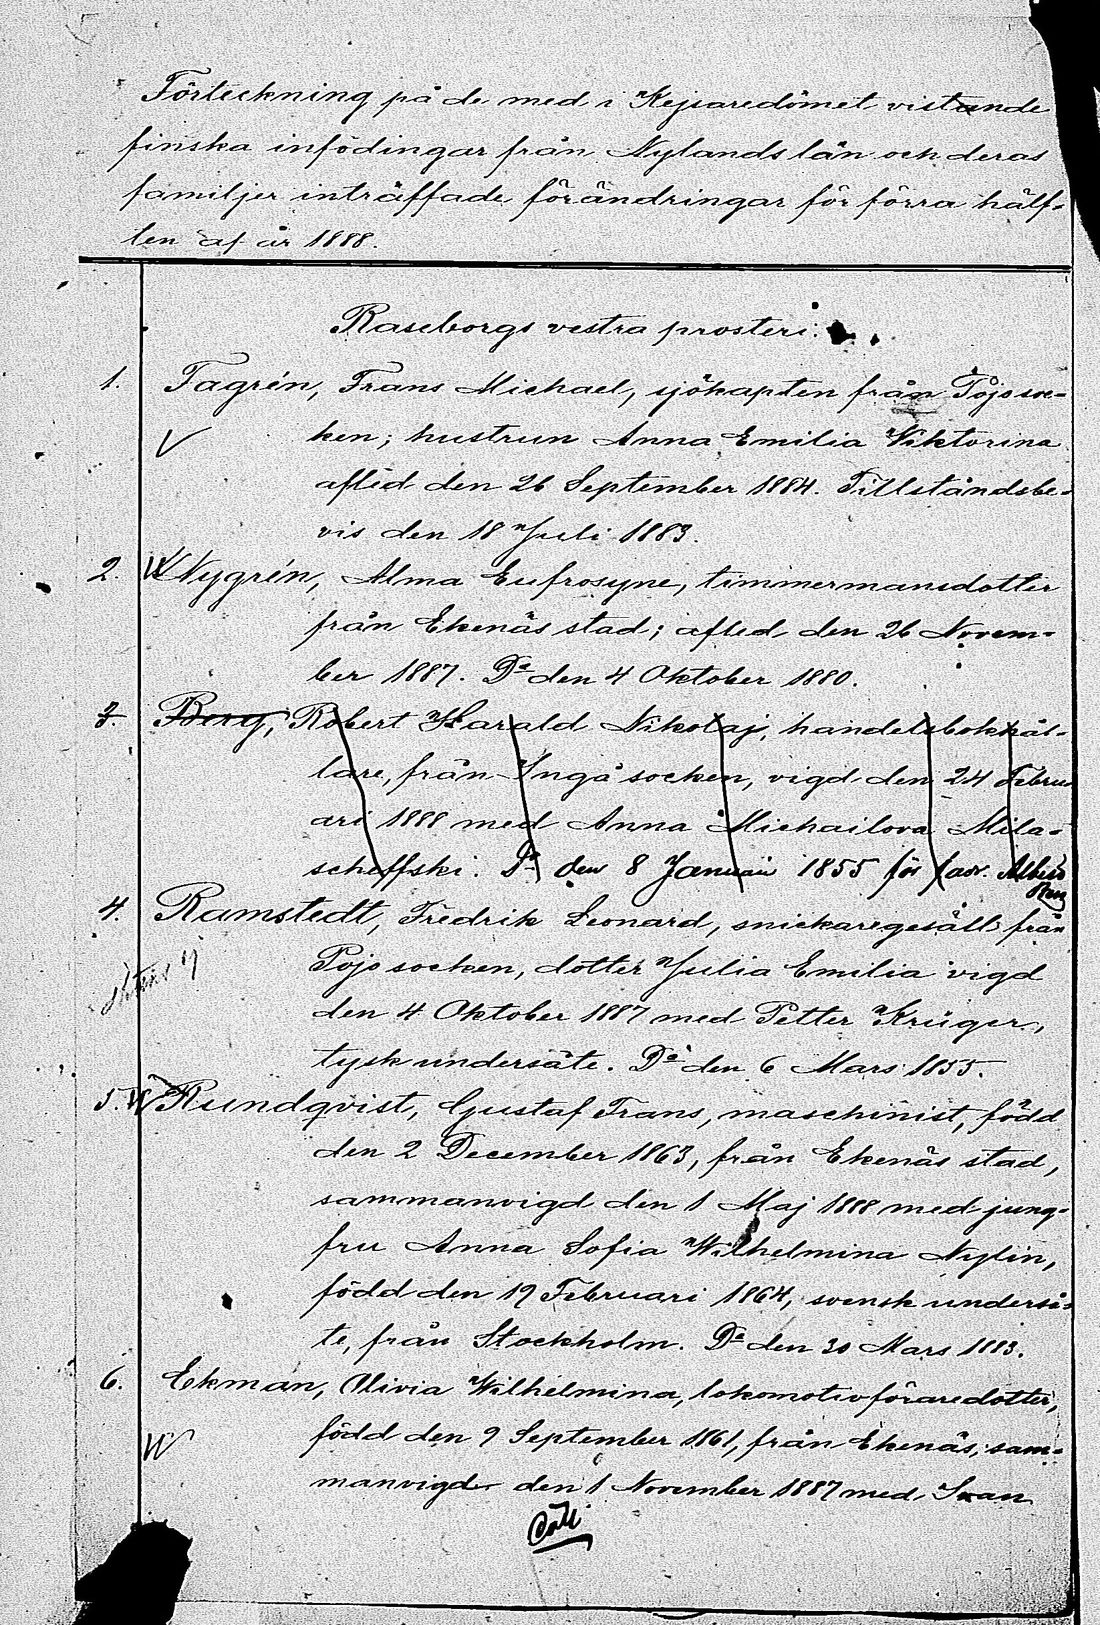 Förteckning på de med i Kejsaredömet vistande
finska infödingar från Nylands län och deras
familjer inträffade förändringar för förra hälf-
ten af år 1888.
Raseborgs vestra prosteri.
1. Tagrén, Frans Michael, sjökapten från Pojo soc-
ken; hustrun Anna Emilia Viktorina
afled den 26 September 1884. Tillståndsbe-
vis den 18 Juli 1883.
2. Nygrén, Alma Eufrosyne, timmermansdotter
från Ekenäs stad; afled den 26 Novem-
ber 1887. Do den 4 Oktober 1880.
3. Berg, Robert Harald Nikolaj, handelsbokhål-
lare, från Ingå socken, vigd den 24 Febru-
ari 1888 med Anna Michailova Mila-
scheffski. Do den 8 Januari 1855 för fadr. Albert
Berg
4. Ramstedt, Fredrik Leonard, snickaregesäll från
Pojo socken, dotter Julia Emilia vigd
den 4 Oktober 1887 med Petter Krüger,
tysk undersåte. Do den 6 Mars 1855.
5. Rundqvist, Gustaf Frans, maschinist, född
den 2 December 1863, från Ekenäs stad,
sammanvigd den 1 Maj 1888 med jung-
fru Anna Sofia Wilhelmina Nylin,
född den 19 Februari 1864, svensk underså-
te, från Stockholm. Do den 30 Mars 1883.
6. Ekman, Olivia Wilhelmina, lokomotivföraredotter,
född den 9 September 1861, från Ekenäs, sam-
manvigd den 1 November 1887 med Ivan